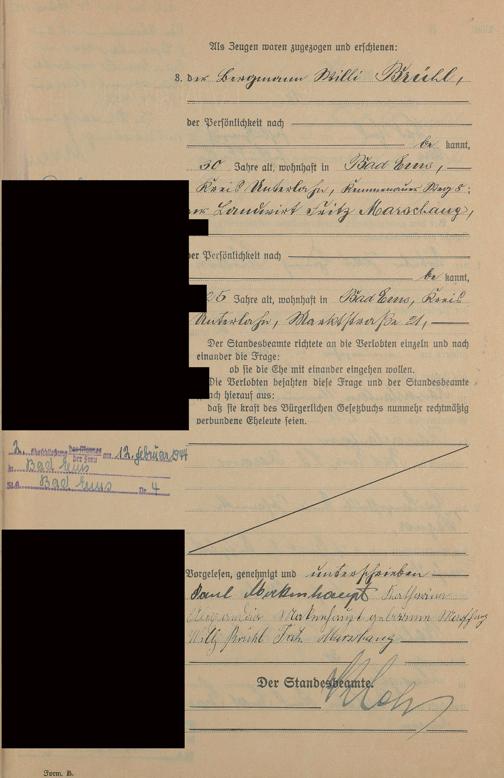 Als Zeugen waren zugezogen und erschienen:
3. der Bergmann Willi Brühl,
der Persönlichkeit nach
be kannt,
30 Jahre alt, wohnhaft in Bad Ems,
Kreis Unterlahn, Kemmenauer Weg 8;
Landwirt Fritz Marschang,
der Persönlichkeit nach
be kannt,
25 Jahre alt, wohnhaft in Bad Ems, Kreis
Unterlahn, Marktstraße 21,
Der Standesbeamte richtete an die Verlobten einzeln und nach
einander die Frage:
ob sie die Ehe mit einander eingehen wollen.
Die Verlobten bejahten diese Frage und der Standesbeamte
sprach hierauf aus:
daß sie kraft des Bürgerlichen Gesetzbuchs nunmehr rechtmäßig
verbundene Eheleute seien.
2. Eheschließung des Mannes
der Frau am 12. Februar 1944
in Bad Ems
St.A. Bad Ems Nr. 4
Vorgelesen, genehmigt und unterschrieben
Paul Katharina
geborene
Willy Brühl Fritz Marschang
Der Standesbeamte.
Form. B.